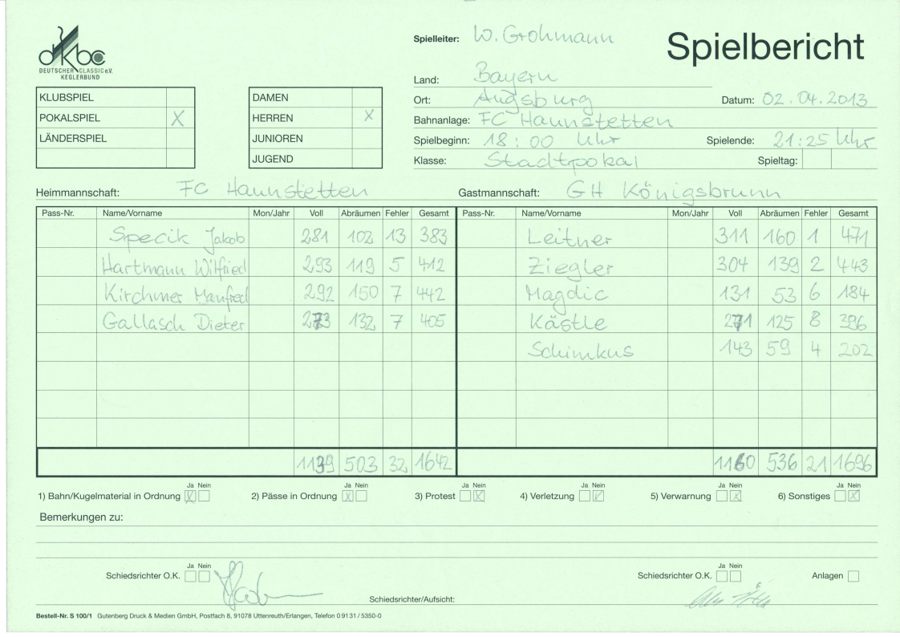 Spielleiter: W. Grohmann
Spielbericht
dkbc
DEUTSCHER CLASSIC e.V.
KEGLERBUND
Land: Bayern
KLUBSPIEL
POKALSPIEL X
LÄNDERSPIEL
DAMEN
HERREN X
JUNIOREN
JUGEND
Ort: Augsburg Datum: 02.04.2013
Bahnanlage: FC Haunstetten
Spielbeginn: 18:00 Uhr Spielende: 21:25 Uhr
Klasse: Stadtpokal Spieltag:
Heimmannschaft: FC Haunstetten Gastmannschaft: GH Königsbrunn
Pass-Nr. Name/Vorname Mon/Jahr Voll Abräumen Fehler Gesamt Pass-Nr. Name/Vorname Mon/Jahr Voll Abräumen Fehler Gesamt
Specik Jakob 281 102 13 383 Leitner 311 160 1 471
Hartmann Wilfried 293 119 5 412 Ziegler 304 139 2 443
Kirchner Manfred 292 150 7 442 Magdic 131 53 6 184
Gallasch Dieter 273 132 7 405 Kästle 271 125 8 396
Schimkus 143 59 4 202
1139 503 32 1642 1160 536 21 1696
Ja Nein Ja Nein Ja Nein Ja Nein Ja Nein Ja Nein
1) Bahn/Kugelmaterial in Ordnung X 2) Pässe in Ordnung X 3) Protest X 4) Verletzung X 5) Verwarnung X 6) Sonstiges X
Bemerkungen zu:
Ja Nein Ja Nein
Schiedsrichter O.K. Schiedsrichter O.K. Anlagen
Schiedsrichter/Aufsicht:
Bestell-Nr. S 100/1 Gutenberg Druck & Medien GmbH, Postfach 8, 91078 Uttenreuth/Erlangen, Telefon 0 91 31 / 53 50-0